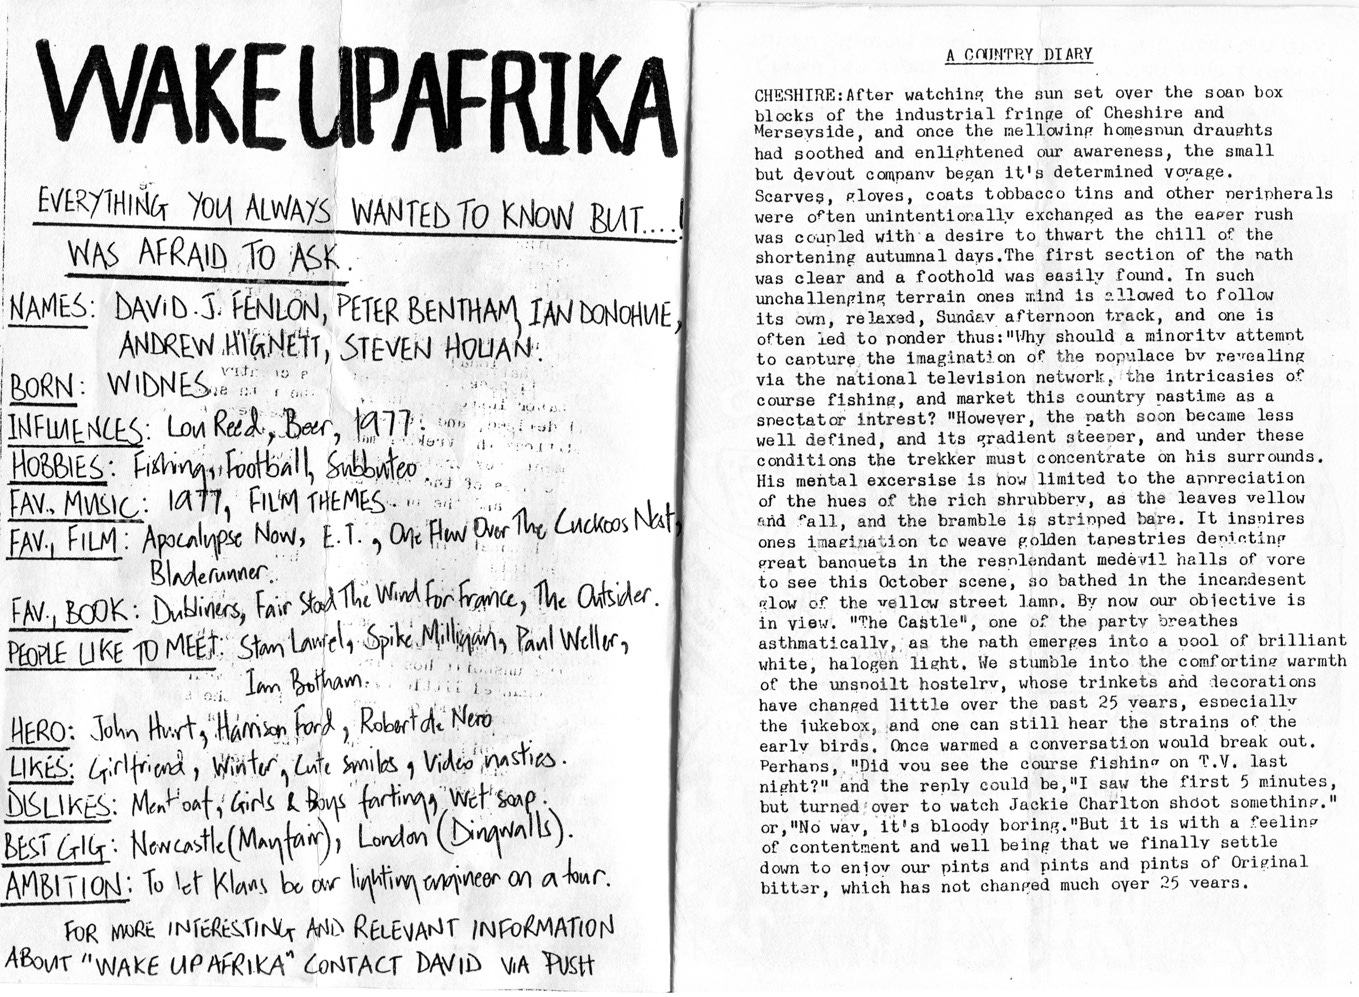 WAKE UP AFRIKA
EVERYTHING YOU ALWAYS WANTED TO KNOW BUT....!
WAS AFRAID TO ASK.
NAMES: DAVID J. FENLON, PETER BENTHAM, IAN DONOHUE,
ANDREW HIGNETT, STEVEN HOUAN.
BORN: WIDNES
INFLUENCES: Lou Reed, Beer, 1977.
HOBBIES: Fishing, Football, Subbuteo
FAV. MUSIC: 1977, FILM THEMES
FAV, FILM: Apocalypse Now, E.T., One Flew Over The Cuckoos Nest,
Bladerunner.
FAV, BOOK: Dubliners, Fair Stood The Wind For France, The Outsider.
PEOPLE LIKE TO MEET: Stan Laurel, Spike Milligan, Paul Weller,
Ian Botham.
HERO: John Hurt, Harrison Ford, Robert de Nero
LIKES: Girlfriend, Winter, Cute smiles, Video nasties.
DISLIKES: Meat oaf, Girls & Boys farting, Wet soap.
BEST GIG: Newcastle (Mayfair), London (Dingwalls).
AMBITION: To let Klans be our lighting engineer on a tour.
FOR MORE INTERESTING AND RELEVANT INFORMATION
ABOUT "WAKE UP AFRIKA" CONTACT DAVID VIA PUSH
A COUNTRY DIARY
CHESHIRE:After watching the sun set over the soap box
blocks of the industrial fringe of Cheshire and
Merseyside, and once the mellowing homespun draughts
had soothed and enlightened our awareness, the small
but devout company began it's determined voyage.
Scarves, gloves, coats tobbacco tins and other peripherals
were often unintentionally exchanged as the eager rush
was coupled with a desire to thwart the chill of the
shortening autumnal days.The first section of the path
was clear and a foothold was easily found. In such
unchallenging terrain ones mind is allowed to follow
its own, relaxed, Sunday afternoon track, and one is
often led to ponder thus:"Why should a minority attempt
to capture the imagination of the populace by revealing
via the national television network, the intricasies of
course fishing, and market this country pastime as a
spectator intrest? "However, the path soon became less
well defined, and its gradient steeper, and under these
conditions the trekker must concentrate on his surrounds.
His mental excersise is now limited to the appreciation
of the hues of the rich shrubbery, as the leaves yellow
and fall, and the bramble is stripped bare. It inspires
ones imagination to weave golden tapestries depicting
great banquets in the resplendant medevil halls of yore
to see this October scene, so bathed in the incandesent
glow of the yellow street lamp. By now our objective is
in view. "The Castle", one of the party breathes
asthmatically, as the path emerges into a pool of brilliant
white, halogen light. We stumble into the comforting warmth
of the unspoilt hostelry, whose trinkets and decorations
have changed little over the past 25 years, especially
the jukebox, and one can still hear the strains of the
early birds. Once warmed a conversation would break out.
Perhaps, "Did you see the course fishing on T.V. last
night?" and the reply could be,"I saw the first 5 minutes,
but turned over to watch Jackie Charlton shoot something."
or,"No way, it's bloody boring."But it is with a feeling
of contentment and well being that we finally settle
down to enjoy our pints and pints and pints of Original
bitter, which has not changed much over 25 years.